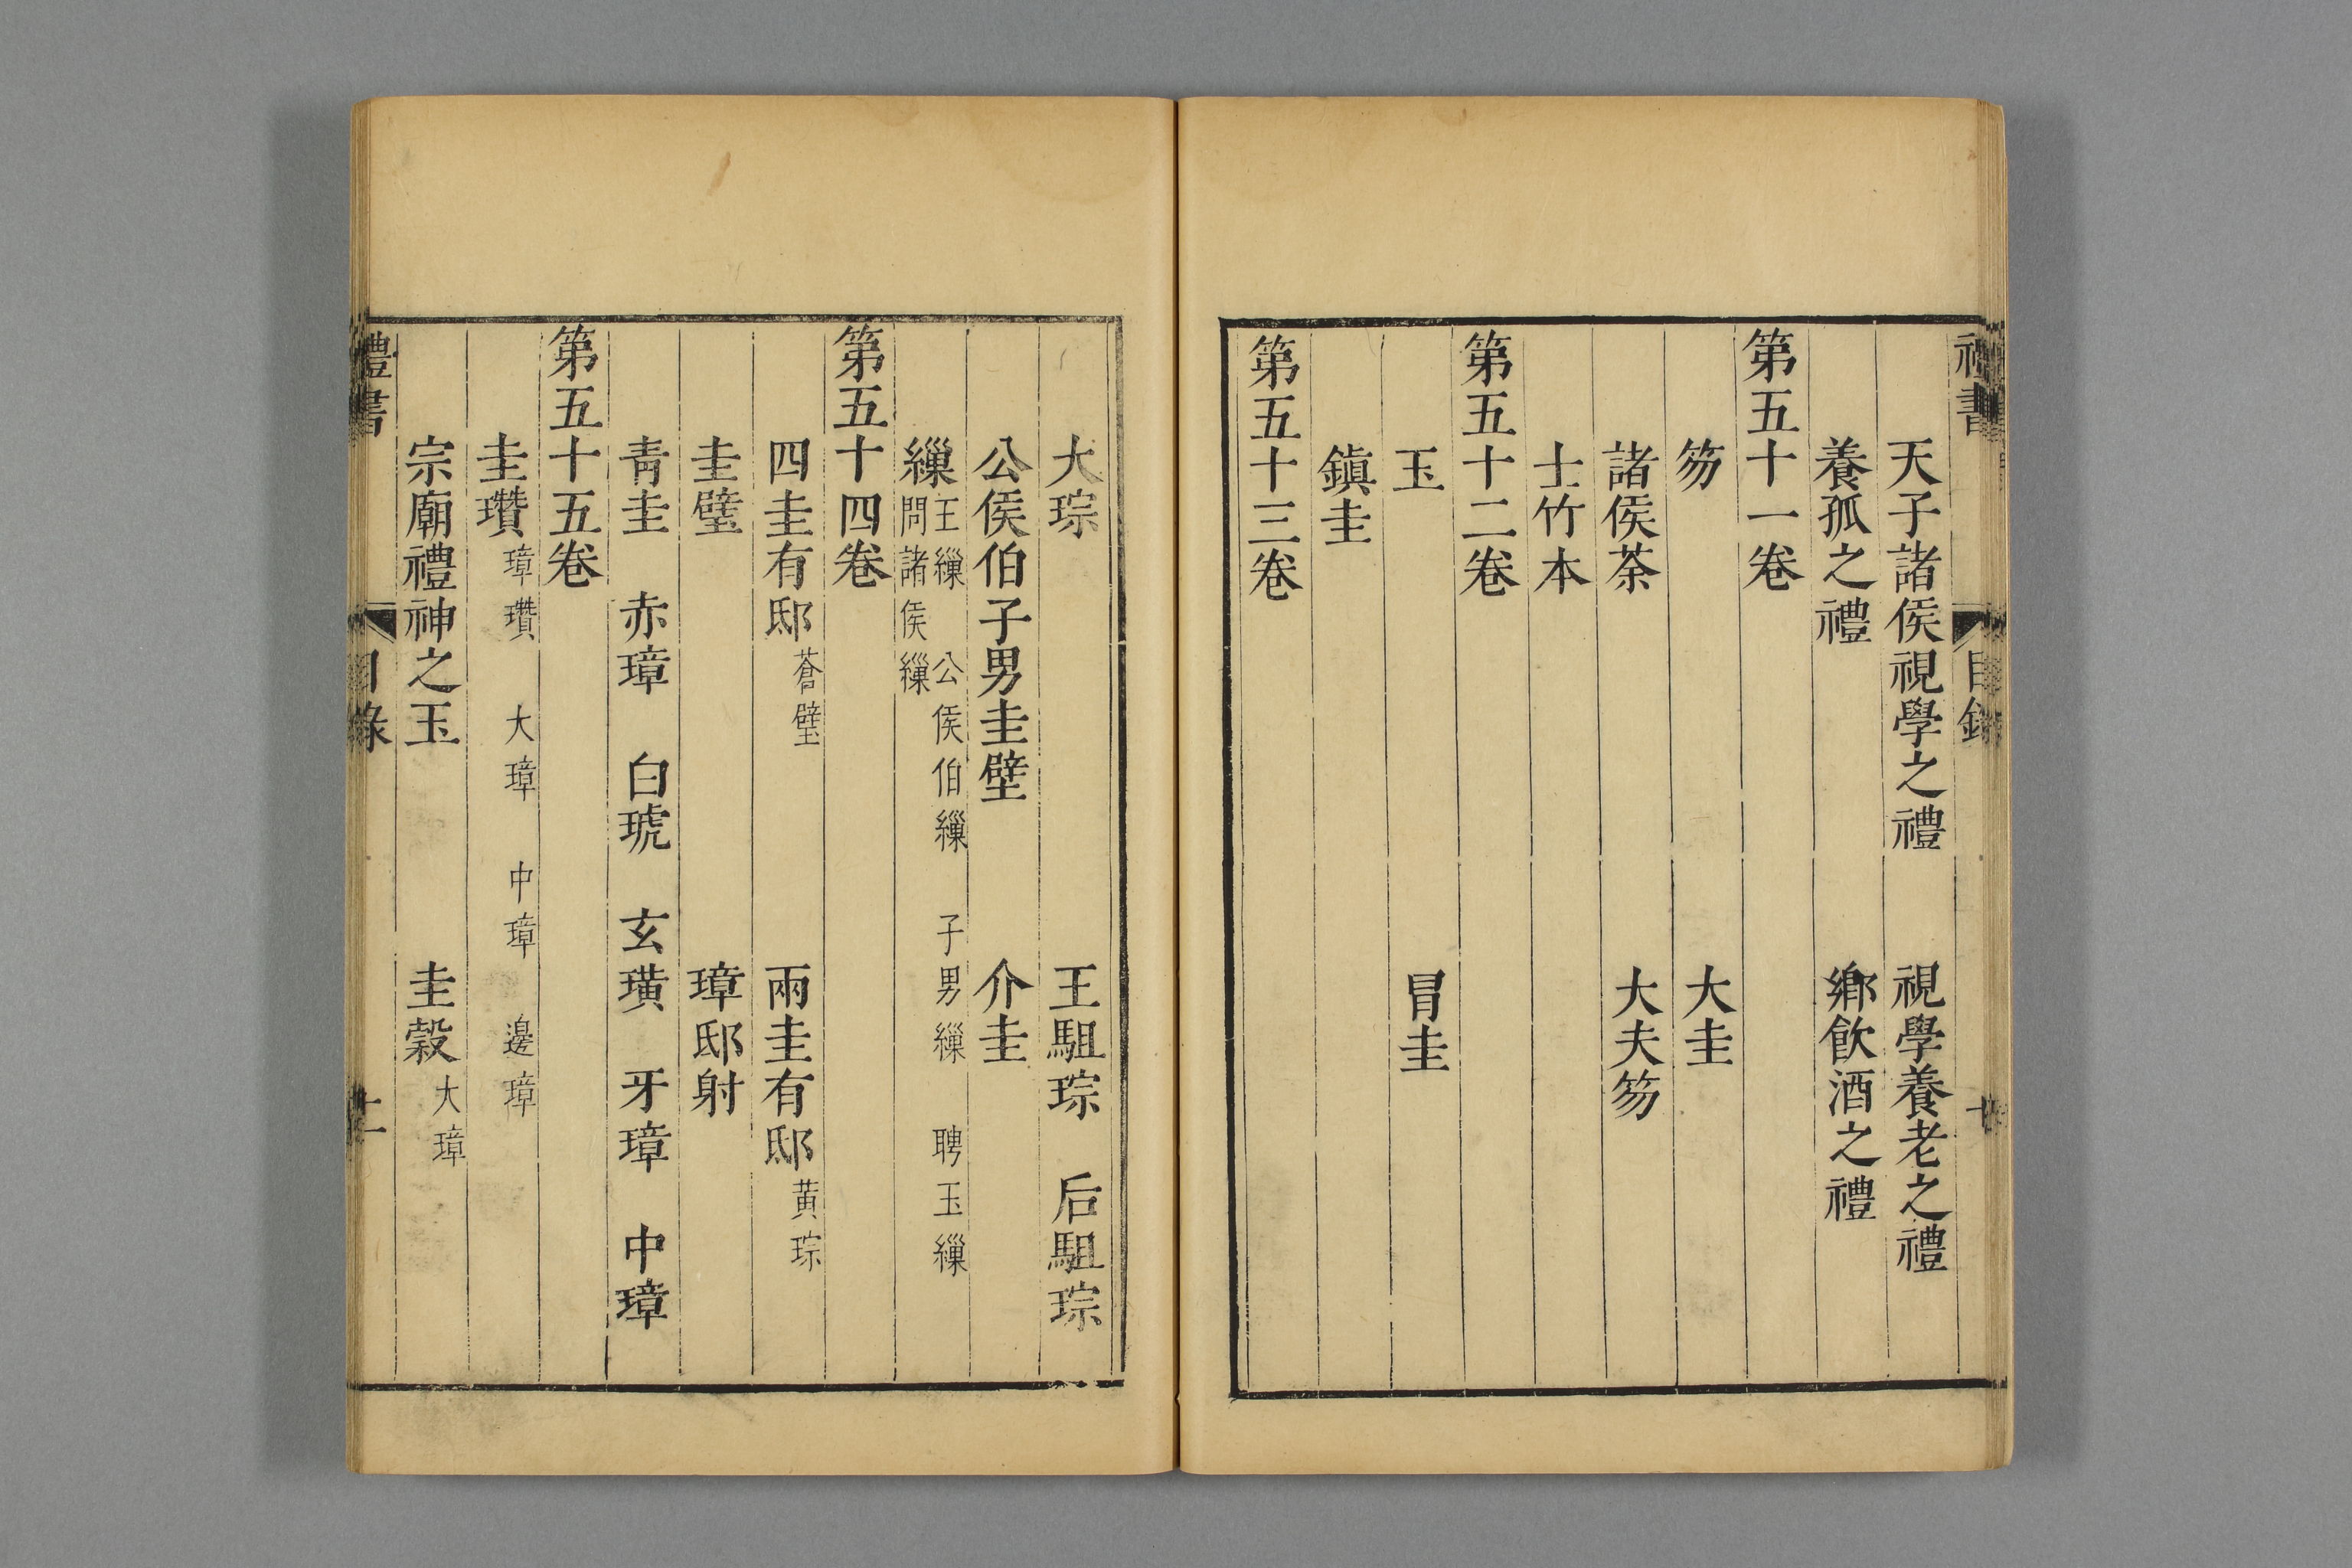 禮書 目錄 十
天子諸侯視學之禮 視學養老之禮
養孤之禮 鄉飲酒之禮
第五十一卷
笏 大圭
諸侯荼 大夫笏
士竹本
第五十二卷
玉 冒圭
鎮圭
第五十三卷
大琮 王駔琮 后駔琮
公侯伯子男圭璧 介圭
繅 王繅 公侯伯繅 子男繅 聘玉繅 問諸侯繅
第五十四卷
四圭有邸 蒼璧 兩圭有邸 黃琮
圭璧 璋邸射
青圭 赤璋 白琥 玄璜 牙璋 中璋
第五十五卷
圭瓚 璋瓚 大璋 中璋 邊璋
宗廟禮神之玉 圭穀 大璋
禮書 目錄 十一